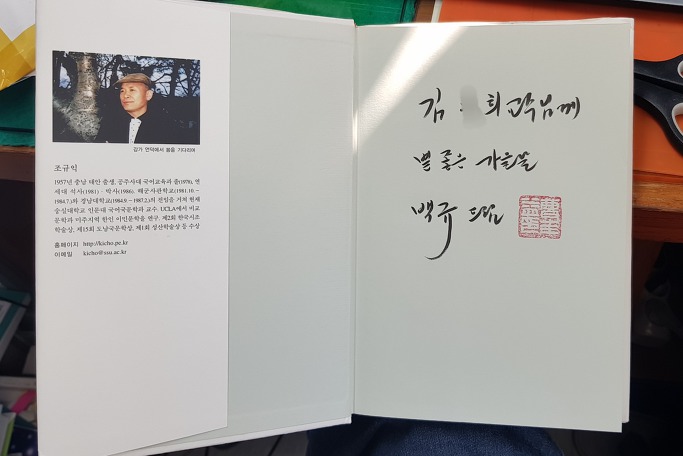 강가 언덕에서 봄을 기다리며
조규익
1957년 충남 태안 출생, 공주사대 국어교육과 졸(1978), 연
세대 석사(1981)·박사(1986). 해군사관학교(1981.10.~
1984.7.)와 경남대학교(1984.9.~1987.2.)의 전임을 거쳐 현재
숭실대학교 인문대 국어국문학과 교수. UCLA에서 비교
문학과 미주지역 한인 이민문학을 연구. 제2회 한국시조
학술상, 제15회 도남국문학상, 제1회 성산학술상 등 수상
홈페이지 http://kicho.pe.kr
이메일 kicho@ssu.ac.kr
김 희
볕 좋은 가을날
백규 드림